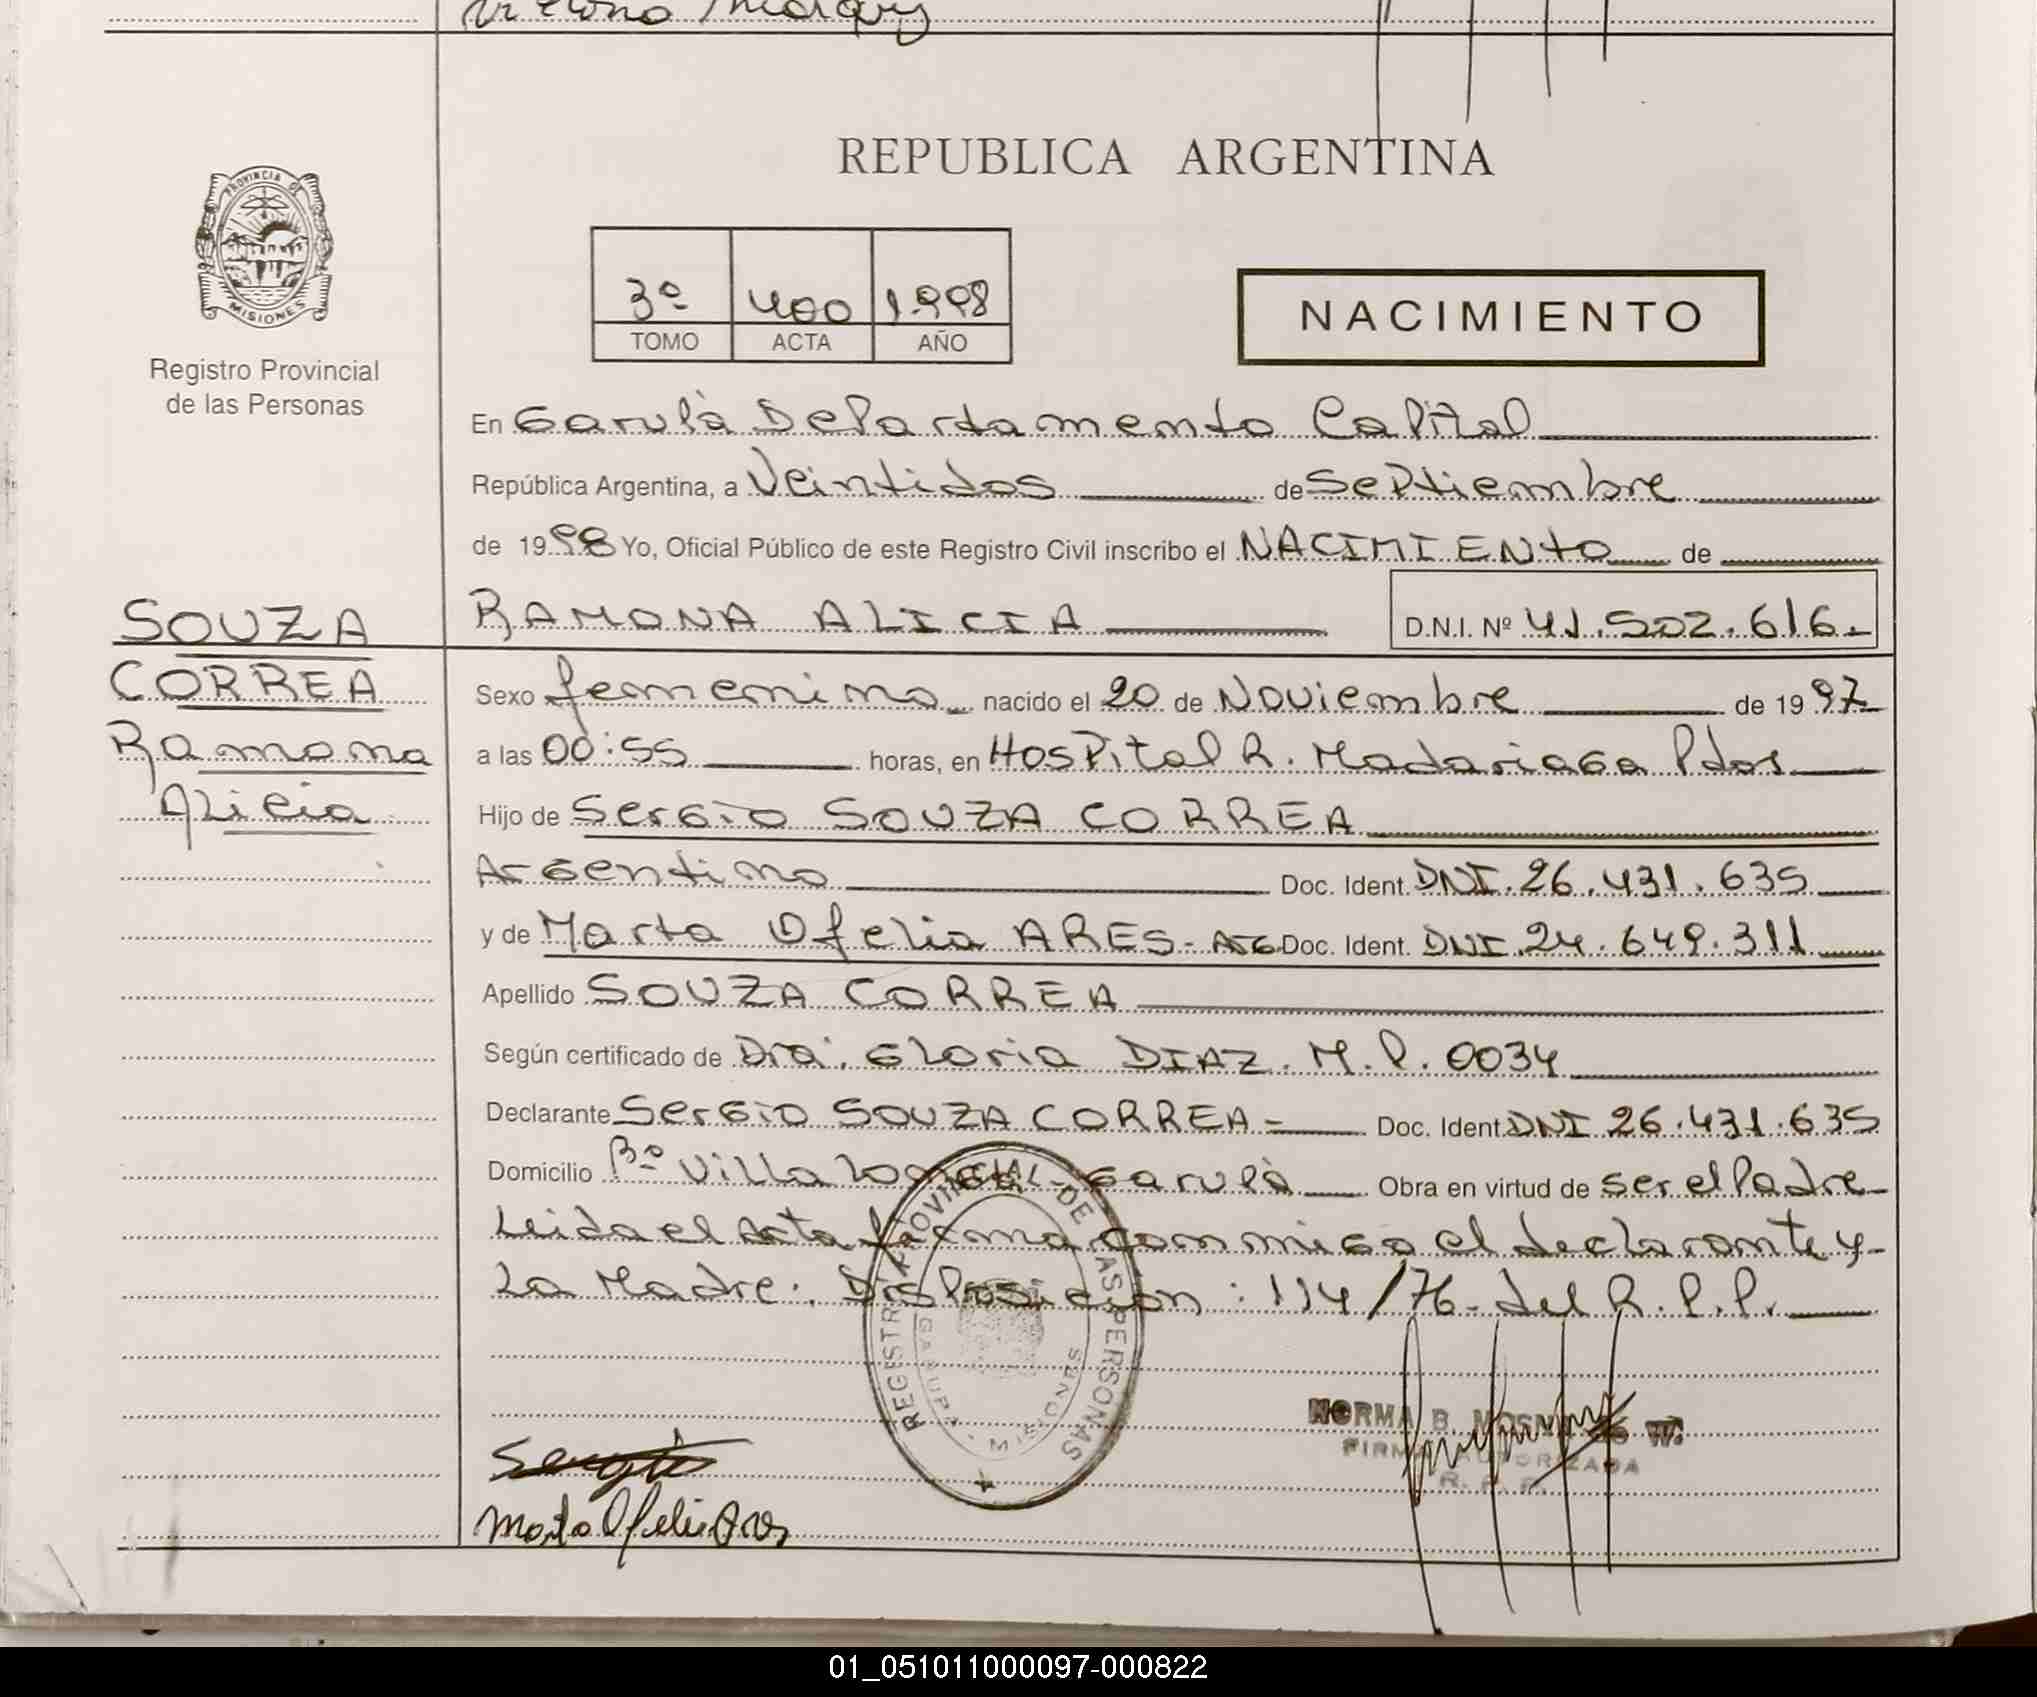 Victorino
REPUBLICA ARGENTINA
PROVINCIA DE
MISIONES
Registro Provincial
de las Personas
3º 400 1.998
TOMO ACTA AÑO
NACIMIENTO
En Garupà Departamento Capital
República Argentina, a Veintidos de Septiembre
de 1998 Yo, Oficial Público de este Registro Civil inscribo el NACIMIENTO de
RAMONA ALICIA D.N.I. Nº 41.502.616.-
SOUZA
CORREA
Ramona
Alicia
Sexo femenino nacido el 20 de Noviembre de 1997
a las 00:55 horas, en Hospital R. Madariaga Pdas
Hijo de Sergio SOUZA CORREA
Argentino Doc. Ident. DNI. 26.431.635
y de Marta Ofelia ARES- ARG Doc. Ident. DNI. 24.649.311
Apellido SOUZA CORREA
Según certificado de Dra. Gloria DIAZ. M.P. 0034
Declarante Sergio SOUZA CORREA Doc. Ident. DNI 26.431.635
Domicilio Bº Villa Longa - Garupà Obra en virtud de ser el Padre
Leida el acta firma conmigo el declarante y
La Madre. Disposicion: 114/76- del R.P.P.
REGISTRO PROVINCIAL DE LAS PERSONAS
GARUPA - MISIONES
NORMA B. W.
FIRMA AUTORIZADA
R. P. P.
Sergio
Marta Ofelia Ares
01_051011000097-000822